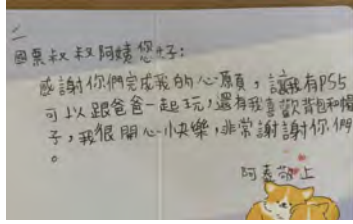 國票叔叔阿姨您好:
感謝你們完成我的心願,讓我有PS5
可以跟爸爸一起玩,還有我喜歡背包和帽
子,我很開心快樂,非常謝謝你們
。
阿嘉敬上